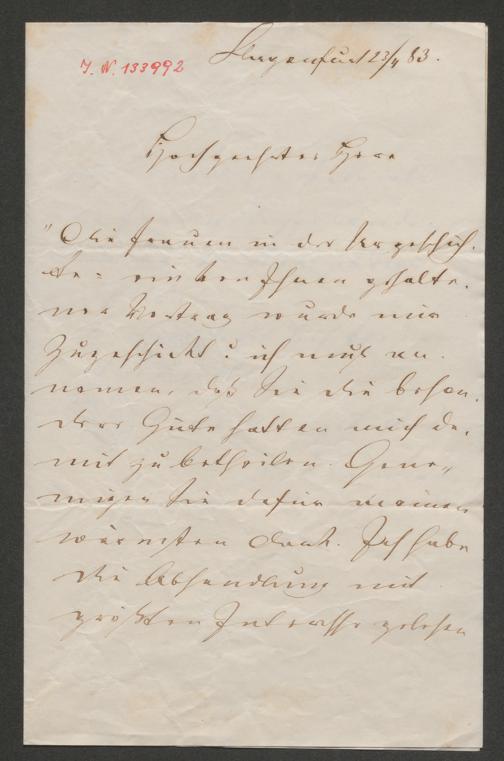 J. N. 133992
Klagenfurt 23/4 83.
Hochgeehrter Herr
"Die Frauen in der Sargeschich-
te" ein von Ihnen gehalte-
ner Vortrag wurde mir
zugeschickt; ich muß an-
nemen, daß Sie die beson-
dere Güte hatten mich da-
mit zu betheilen. Gene-
migen Sie dafür meinen
wärmsten Dank. Ich habe
die Abhandlung mit
größten Interesse gelesen